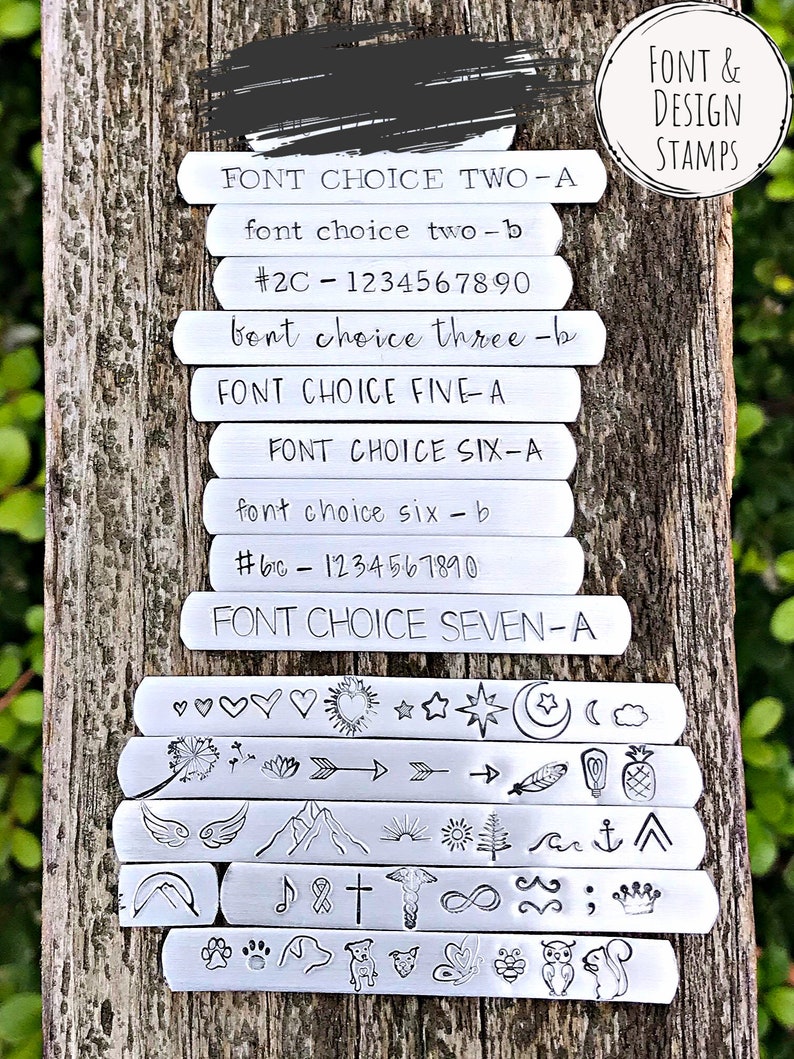 FONT &
DESIGN
STAMPS
FONT CHOICE TWO-A
font choice two-b
#2C - 1234567890
font choice three-b
FONT CHOICE FIVE-A
FONT CHOICE SIX-A
font choice six-b
#6c - 1234567890
FONT CHOICE SEVEN-A
;